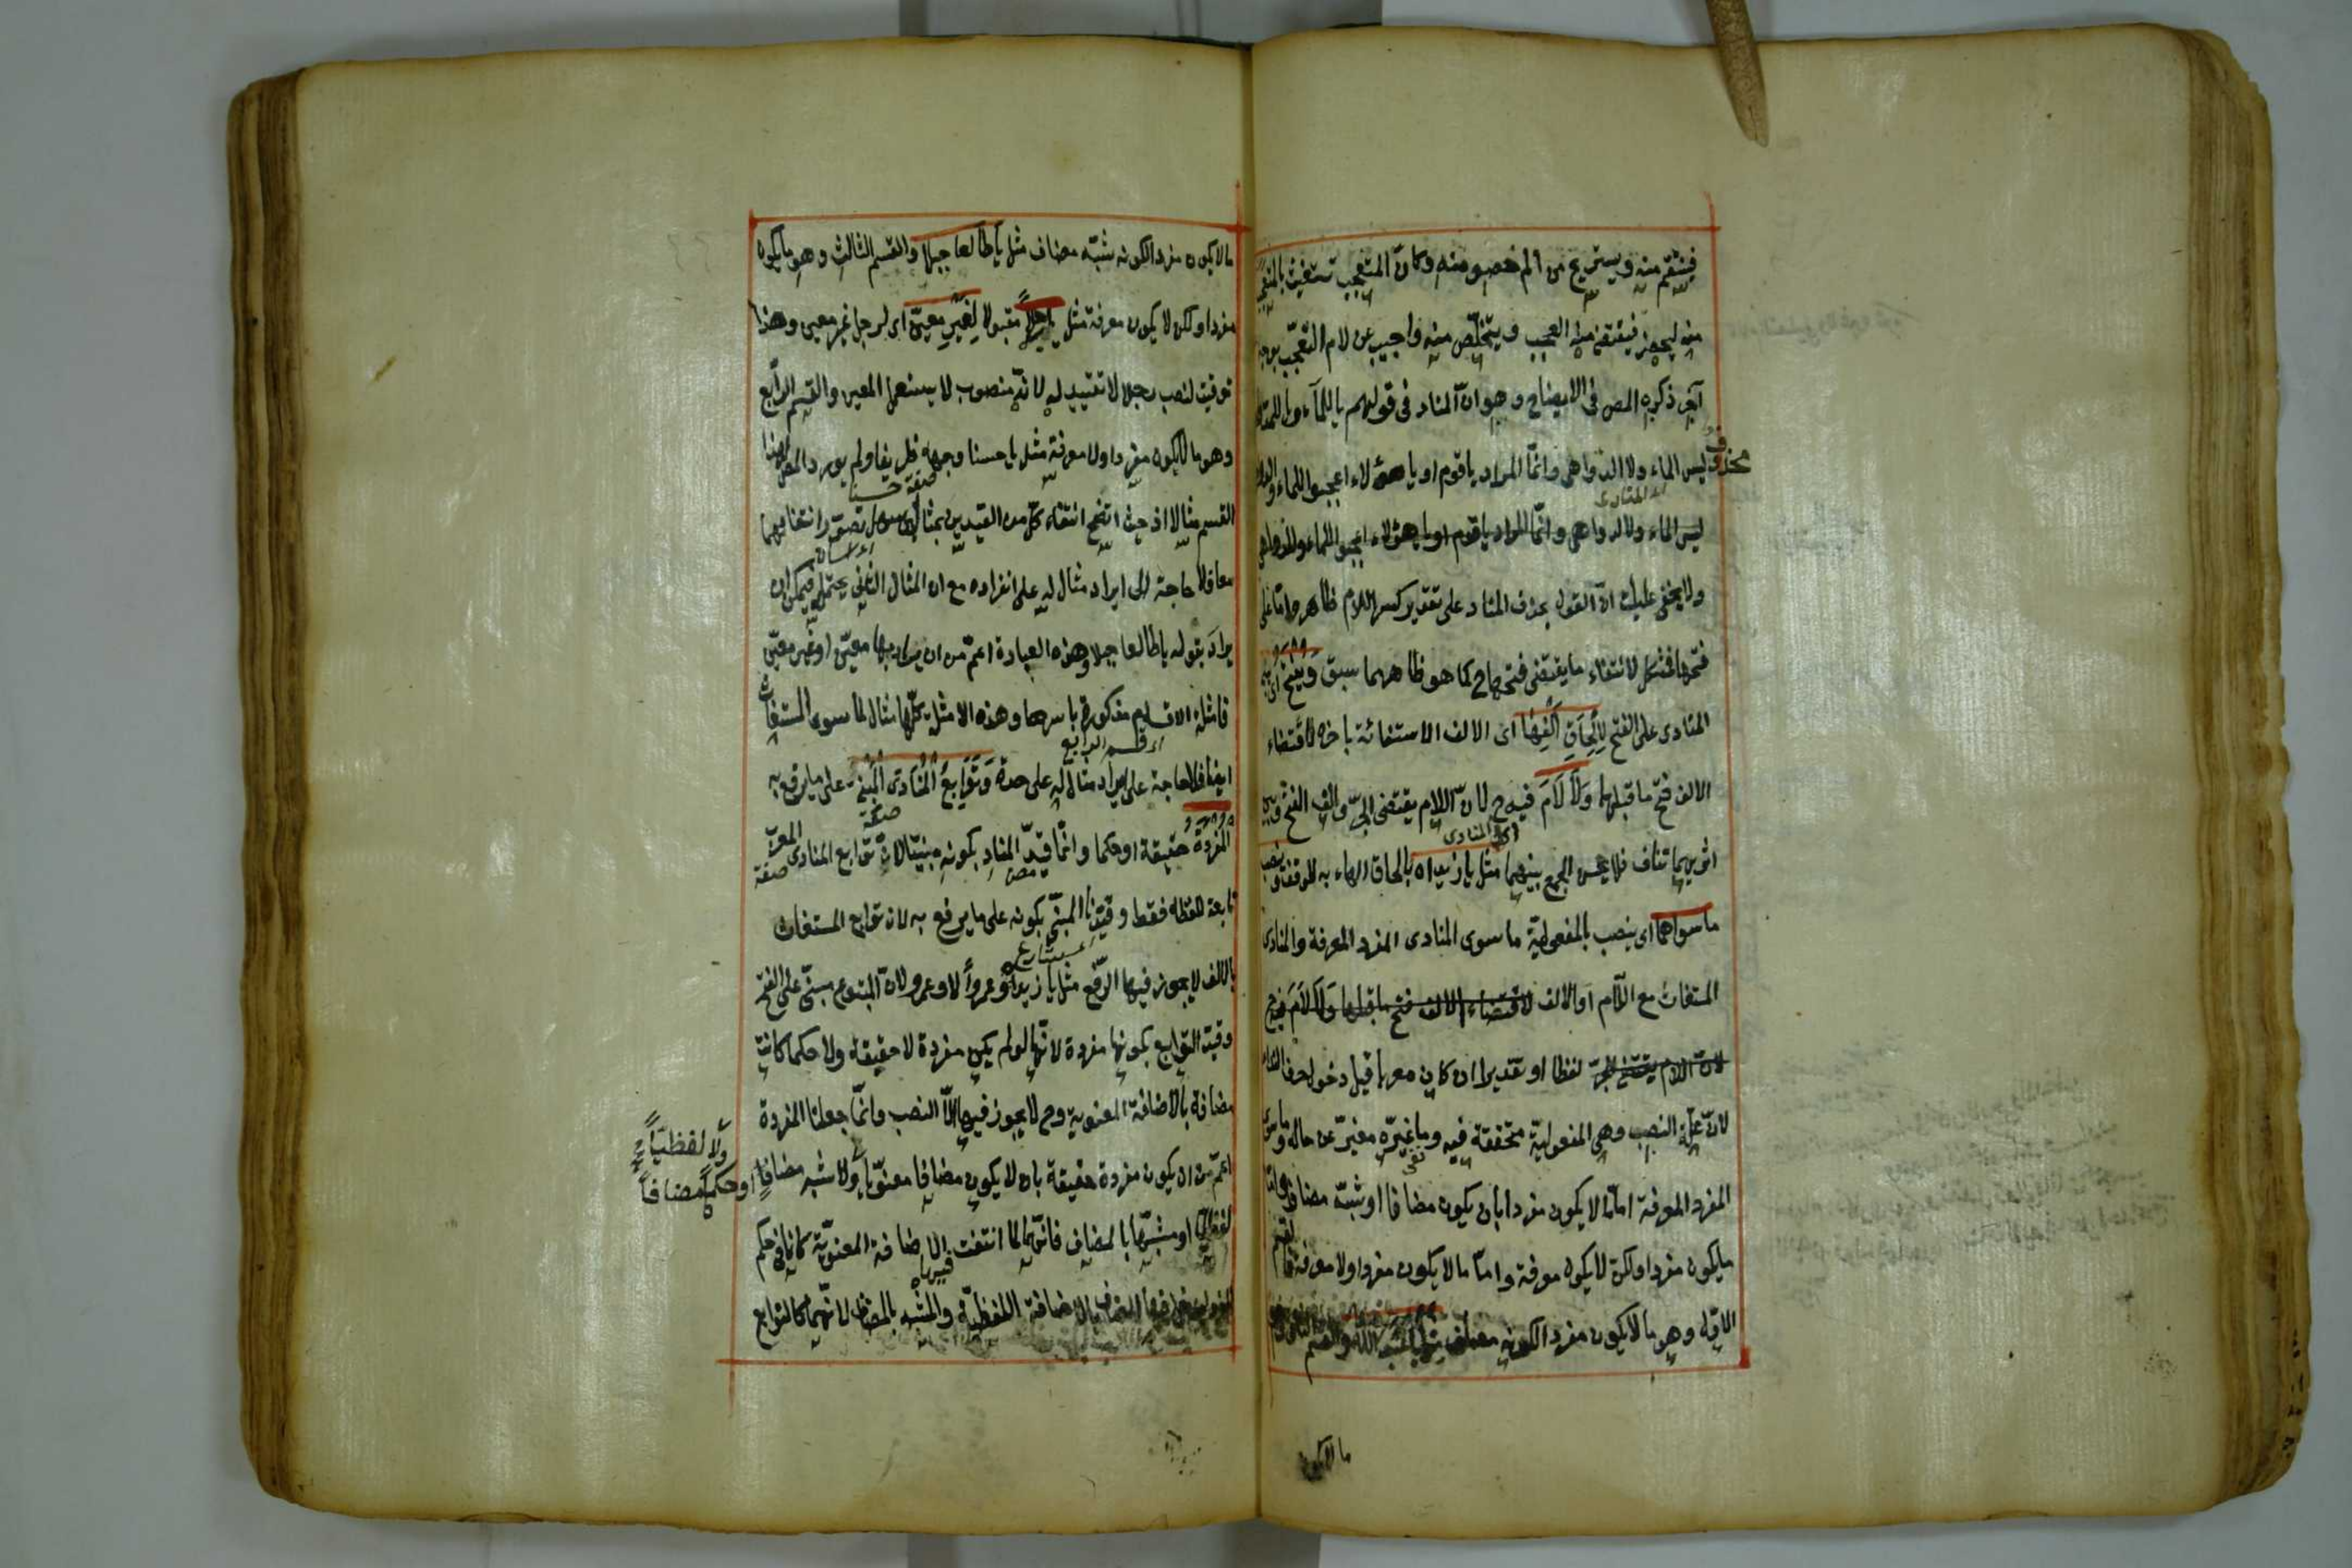 فينتقم منه ويستريح من الم خصومته وكان المتعجب يستغيث بالمتعجب
منه ليحضر فيقتضى منه العجب ويتخلص منه واجيب عن لام التعجب بوجه
آخر ذكره المص فى الايضاح وهو ان المناد فى قولهم يا للماء ويا للدواهى
ليس الماء ولا الدواهى وانما المراد يا قوم او يا هؤلاء اعجبوا للماء وللدواهى
محذوف
اى المنادى
ليس الماء ولا الدواهى وانما المراد يا قوم او يا هؤلاء اعجبوا للماء وللدواهى
ولا يخفى عليك ان القول بحذف المناد على تقدير كسر اللام ظاهر واما على
فتحها فمشكل لانتفاء ما يقتضى فتحها ح كما هو ظاهر مما سبق ويفتح اى يبنى
المنادى على الفتح لِإِلْحَاقِ أَلِفِهَا اى الالف الاستغاثة باخره لاقتضاء
الالف فتح ما قبلها وَلَا لَامَ فيه ح لان اللام يقتضى الجر والالف الفتح فبين
اى المنادى
اثريهما تناف فلا يحسن الجمع بينهما مثل يا زيداه بالحاق الهاء به للوقف وينصب
ما سواهما اى ينصب بالمفعولية ما سوى المنادى المفرد المعرفة والمنادى
المستغاث مع اللام او الالف لاقتضاء الالف فتح ما قبلها وَلَا لَامَ فيه ح
لان اللام يقتضى الجر لفظا او تقديرا ان كان معربا قبل دخول حرف النداء
لان علة النصب وهى المفعولية متحققة فيه وما غيره مغير عن حاله وما سوى
المفرد المعرفة اما ما لا يكون مفردا بان يكون مضافا او شبه مضاف واما
ما يكون مفردا ولكن لا يكون معرفة واما ما لا يكون مفردا ولا معرفة فالقسم
الاول وهو ما لا يكون مفردا لكونه مضاف مثل يا عبد الله والقسم الثانى وهو
ما لا يكون
ما لا يكون مفردا لكونه شبه مضاف مثل يا طالعا جبلا والقسم الثالث وهو ما يكون
مفردا ولكن لا يكون معرفة مثل يا رجلاً مقبولا لِغَيْرِ مُعَيَّنٍ اى لرجل غير معين وهذا
توقيت لنصب رجلا لا تقييد له لانه منصوب لا يستعمل المعين والقسم الرابع
وهو ما لا يكون مفردا ولا معرفة مثل يا حسنا وجهه ظريفا ولم يورد المص لهذا
صفة حسنا
القسم مثالا اذ حيث اتضح انتفاء كل من القيدين بمثال سهل تصور انتفائهما
معا فلا حاجة الى ايراد مثال له على انفراده مع ان المثال الثانى يحتمله فيمكن ان
يراد بقوله يا طالعا جبلا وهذه العبارة اعم من ان يراد بها معين او غير معين
فامثلة الاقسام مذكورة باسرها وهذه الامثلة كلها مثال لما سوى المستغاث
اى قسم الرابع
ايضا فلا حاجة على ايراد مثال له على حدة وَتَوَابِعُ الْمُنَادَى الْمَبْنِىِّ على ما يرفع به
صفة
المفردة حقيقة او حكما وانما قيد المناد بكونه مبنيا لان توابع المنادى المعرب
صفة
تابعة للفظه فقط وقيدنا المبنى بكونه على ما يرفع به لان توابع المستغاث
بالالف لا يجوز فيها الرفع مثل يا زيداه وعمرواً لا وعمرو لان المتبوع مبنى على الفتح
وقيد التوابع بكونها مفردة لانها لو لم يكن مفردة لا حقيقة ولا حكما كانت
مضافة بالاضافة المعنوية وح لا يجوز فيها الا النصب وانما جعلنا المفردة
اعم من ان يكون مفردة حقيقة بان لا يكون مضافا معنويا ولا شبه مضاف او حكما
ولا لفظيا
مضافا
لفظيا او مشبها بالمضاف فانهما لما انتفت الاضافة المعنوية كانا فى حكم
فيهما
المضاف بالاضافة اللفظية والمشبه بالمضاف لانهما كالتوابع